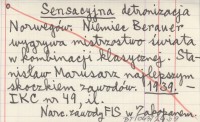 Sensacyjna detronizacja
Norwegów. Niemiec Berauer
wygrywa mistrzostwo świata
w kombinacji klasycznej. Sta-
nisław Marusarz najlepszym
skoczkiem zawodów. 1939. -
IKC nr 49, il.
Narc. zawody FIS w Zakopanem.